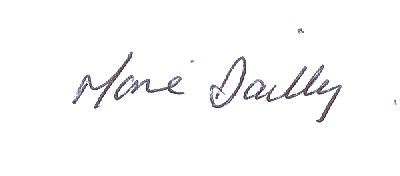 Marie Bailly